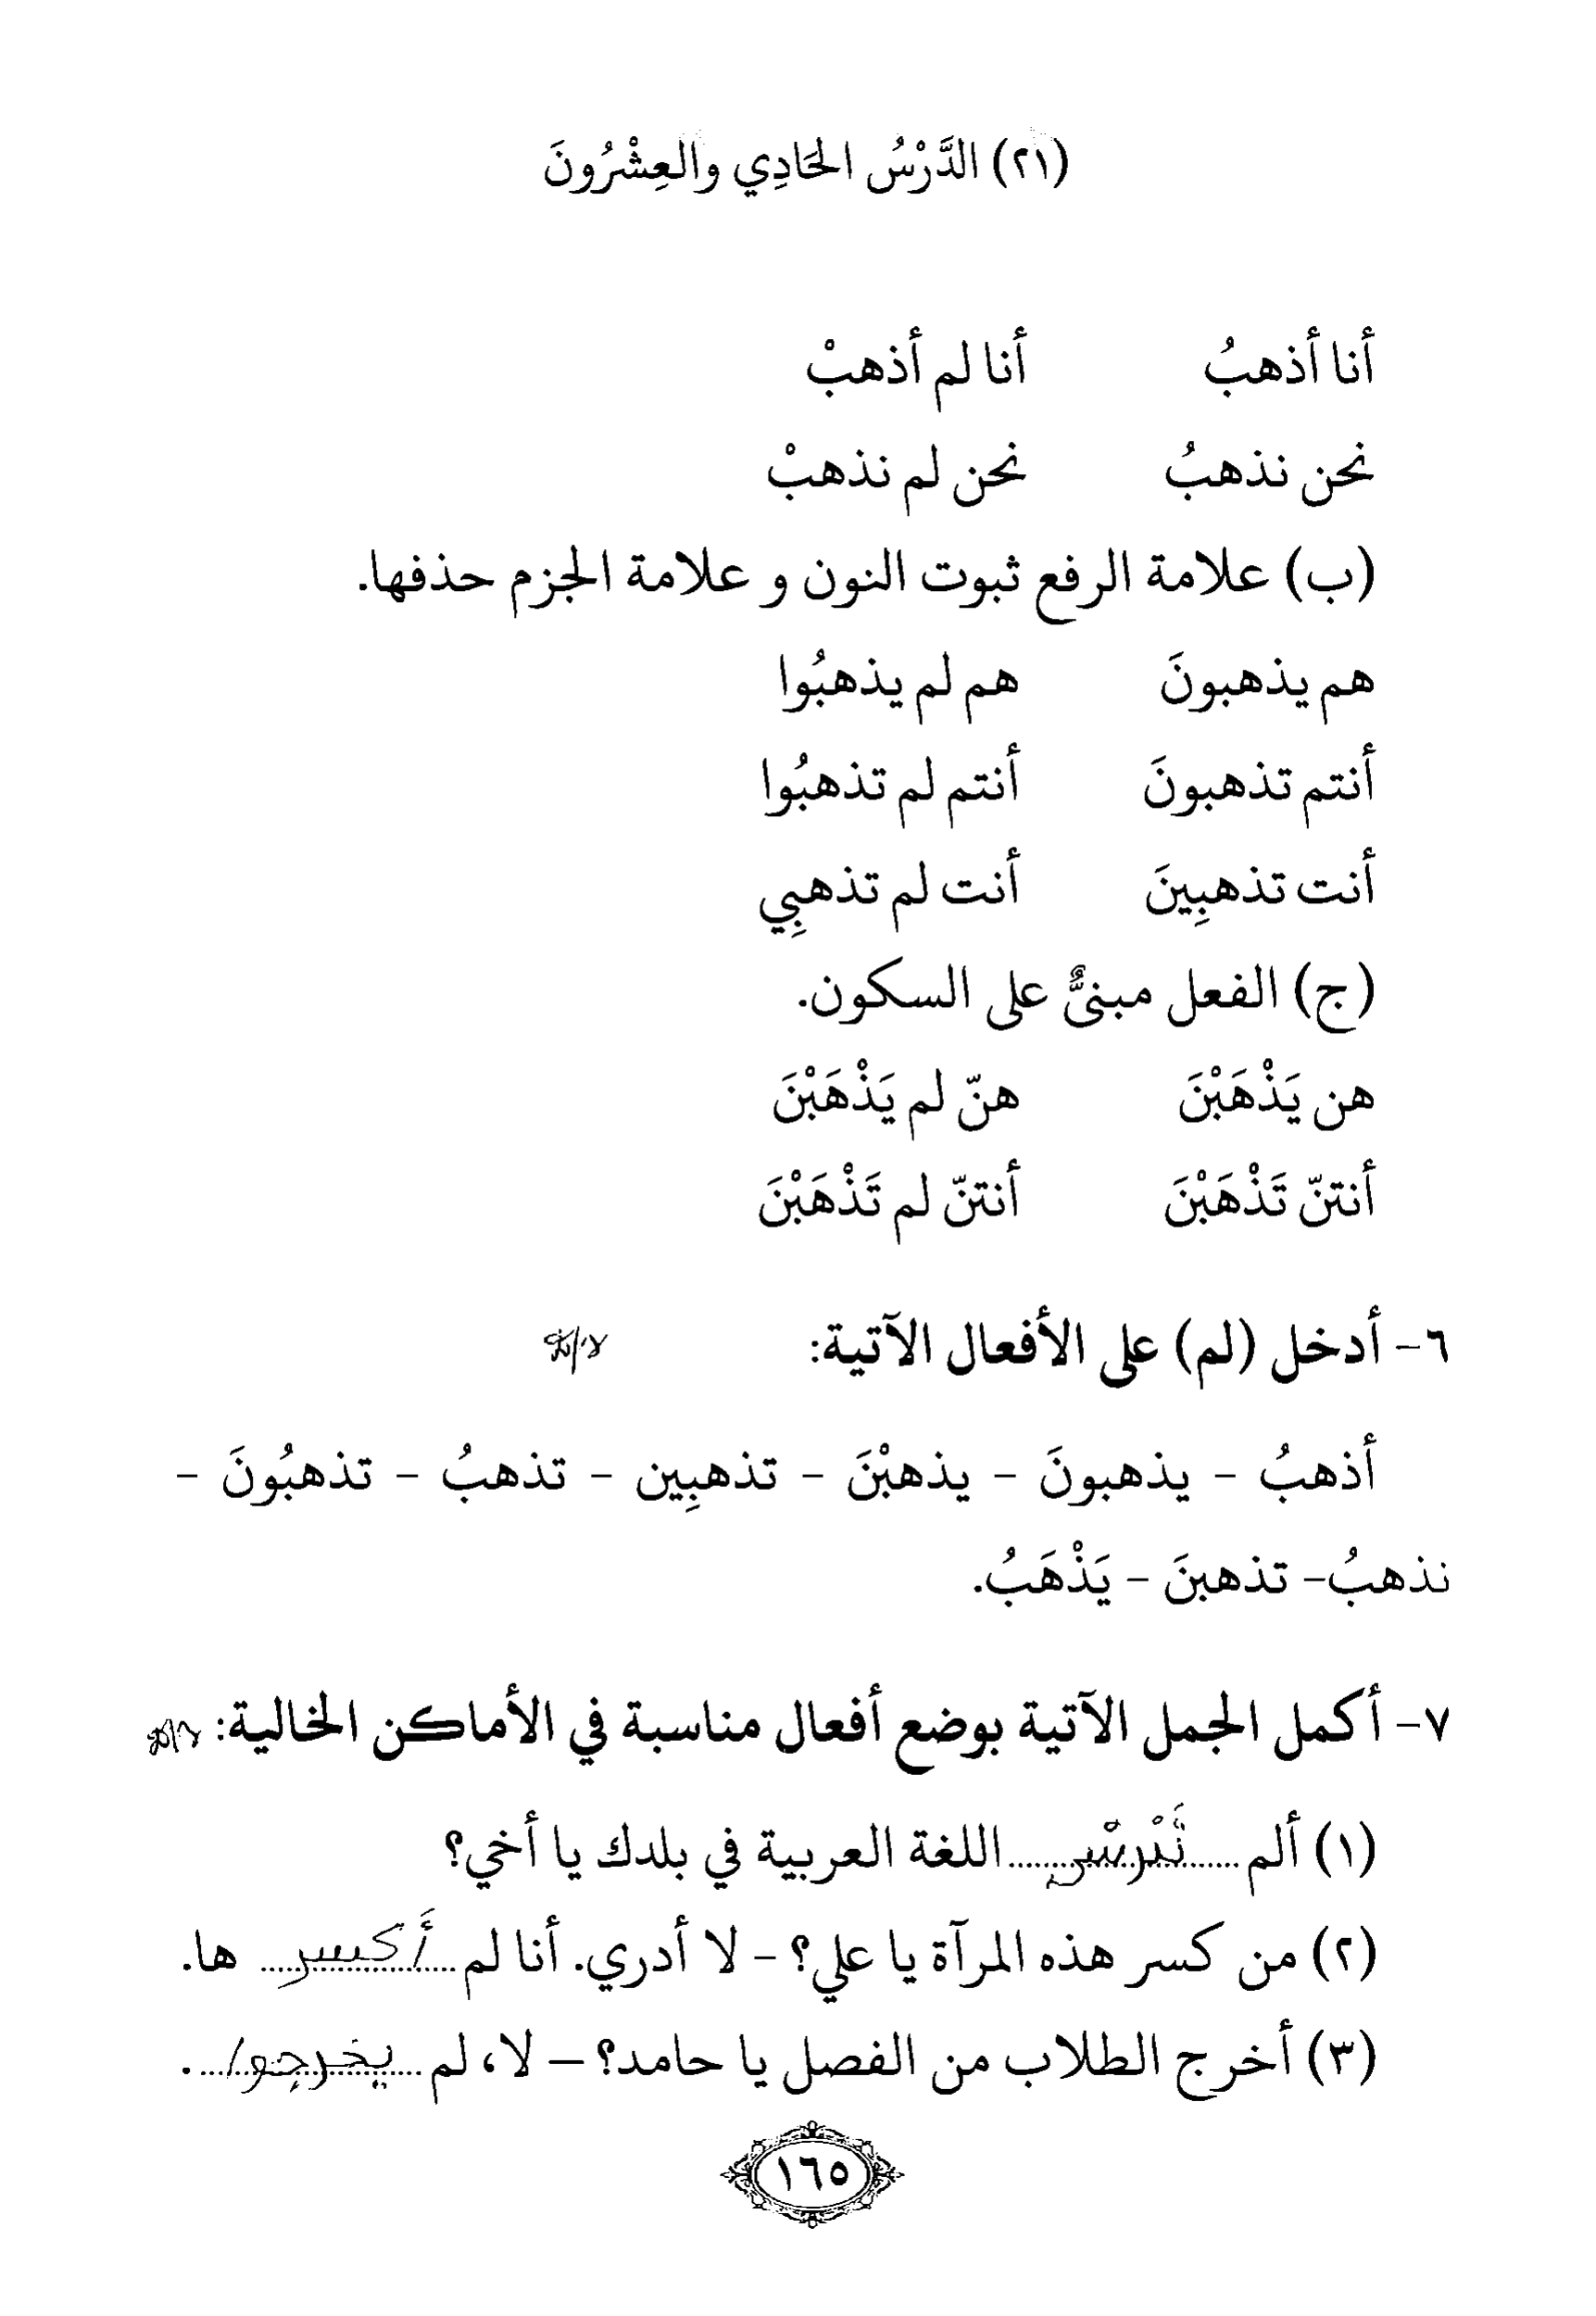 (٢١) الدَّرْسُ الحَادِي والعِشْرُونَ
أنا أذهبُ أنا لم أذهبْ
نحن نذهبُ نحن لم نذهبْ
(ب) علامة الرفع ثبوت النون و علامة الجزم حذفها.
هم يذهبونَ هم لم يذهبُوا
أنتم تذهبونَ أنتم لم تذهبُوا
أنت تذهبِينَ أنت لم تذهبِي
(ج) الفعل مبنىٌّ على السكون.
هن يَذْهَبْنَ هنّ لم يَذْهَبْنَ
أنتنّ تَذْهَبْنَ أنتنّ لم تَذْهَبْنَ
٦- أدخل (لم) على الأفعال الآتية:
أذهبُ - يذهبونَ - يذهبْنَ - تذهبِين - تذهبُ - تذهبُونَ -
نذهبُ- تذهبنَ - يَذْهَبُ.
٧- أكمل الجمل الآتية بوضع أفعال مناسبة في الأماكن الخالية:
(١) ألم تَدْرسْ اللغة العربية في بلدك يا أخي؟
(٢) من كسر هذه المرآة يا علي؟ - لا أدري. أنا لم أَكسر ها.
(٣) أخرج الطلاب من الفصل يا حامد؟ – لا، لم يخرجوا.
١٦٥